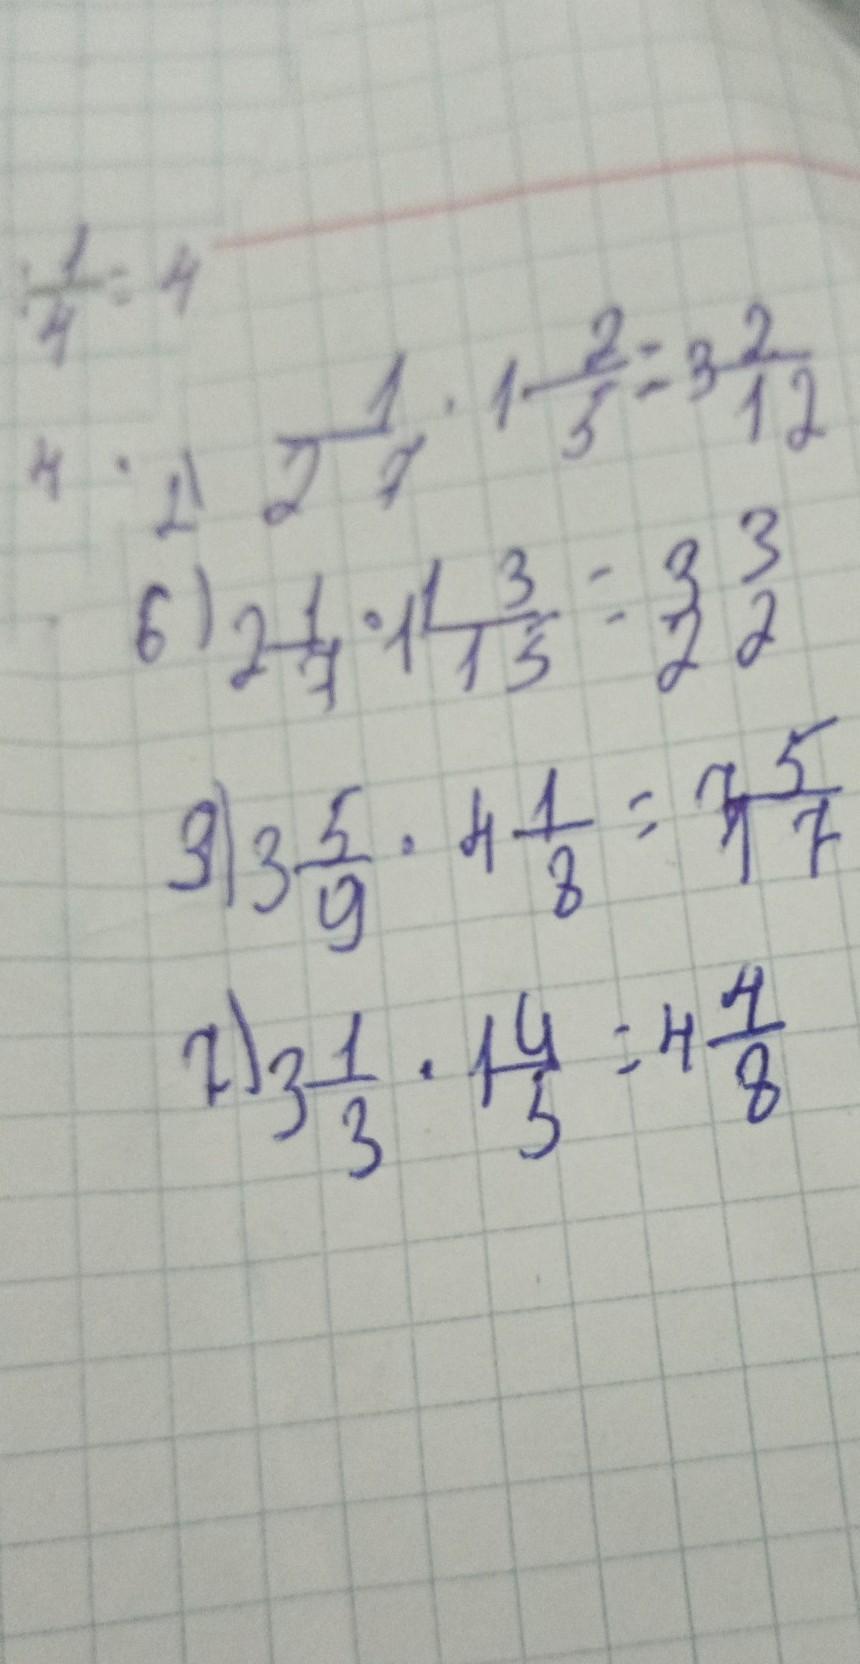 : 1/4 = 4
4 ·
2) 2 1/7 · 1 2/5 = 3 2/12
6) 2 1/7 · 1 3/15 = 3 3/22
9) 3 5/9 · 4 1/8 = 7 5/17
7) 3 1/3 · 1 4/5 = 4 4/8